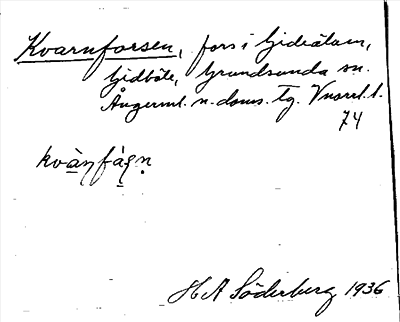 Kvarnforsen, fors i Gideälven,
Gidböle, Grundsunda sn.
Ångerml. n. doms. tg. Vnorrl. l.
74
kvàṇfàṣn̥
H A Söderberg 1936